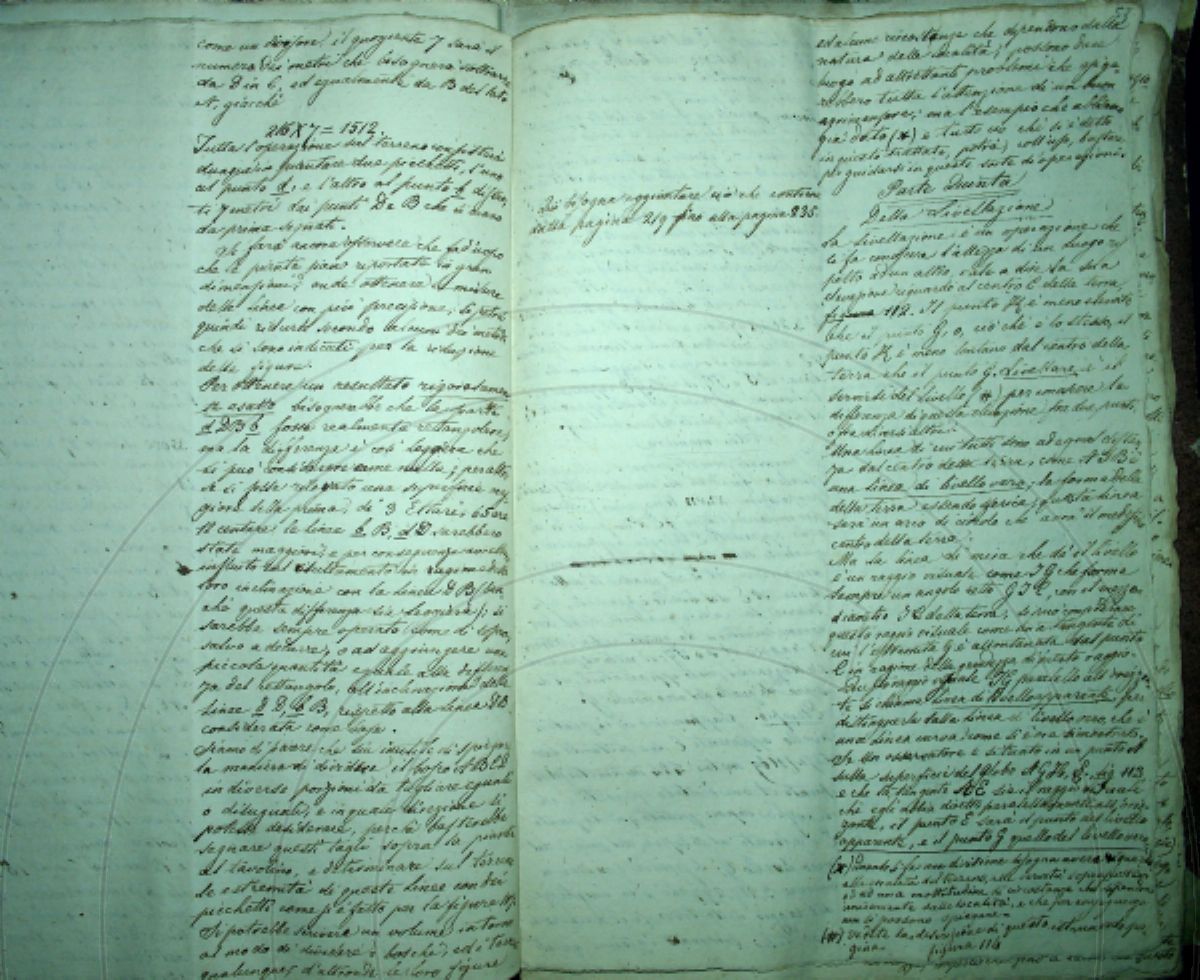 come un divisore, il quoziente 7 sarà il
numero dei metri che bisognerà sottrarre
da D in b, ed egualmente da B del lato
giacchè
216 X 7 = 1512
Tutta l'operazione sul terreno consisterà
dunque in piantare due picchetti, l'uno
al punto d, e l'altro al punto b distan-
ti 7 metri dai punti D e B che si erano
da prima segnati.
Si farà ancora osservare che fa d'uopo
che le piante sian riportate in gran
dimensione; onde ottenere le misure
delle linee con più precisione, si potrà
quindi ridurle secondo alcuni dei metodi
che si sono indicati per la riduzione
delle figure.
Per ottenere un resultato rigorosamen
te esatto bisognerebbe che la parte
d D B b fosse realmente rettangolare,
ma la differenza è così leggera che
si può considerare come nulla; peraltro
se si fosse rilevato una superficie mag
giore della prima, di 3 Ettare, 65 are
11 centiare le linee b B, d D sarebbero
state maggiori, e per conseguenza avrebbero
influito sul in ragione della
loro inclinazione con la linea D B (ben
chè questa differenza sia leggiera); si
sarebbe sempre operato come di sopra,
salvo a detrarre, o ad aggiungere una
piccola quantità eguale alla differen
za del rettangolo, all'inclinazione delle
linee d D, b B, rispetto alla linea D B
considerata come base.
Siamo di parere che sia inutile di spiegare
la maniera di dividere il bosco A B C D
in diverse porzioni da tagliare eguali
o disuguali, e in quale direzione si
potesse desiderare, perchè basterebbe
segnare questi tagli sopra la pianta
al tavolino, e determinare sul terreno
le estremità di queste linee con dei
picchetti come si è fatto per la figura
Si potrebbe scrivere un volume intorno
al modo di dividere i boschi, ed i terreni
qualunque; d'altronde le loro figure
Quì bisogna aggiuntare ciò che contiene
dalla pagina 219 fino alla pagina 235.
ed alcune circostanze che dipendono dalla
natura delle località, possono dare
luogo ad altrettanti problemi che esige
rebbero tutta l'attenzione di un buon
agrimensore; ma l'esempio che abbiamo
già dato (*) e tutto ciò che si è detto
in questo trattato, potrà, coll'uso, bastare
per guidarsi in questa sorta di operazioni.
Parte Quinta
Della Livellazione
La livellazione è un operazione che
ci fa conoscere l'altezza di un luogo ri
spetto ad un altro, vale a dire la sua
elevazione riguardo al centro C della terra,
figura 112. Il punto H, è meno elevato
che il punto G, o, ciò che è lo stesso, il
punto H, è meno lontano dal centro della
terra che il punto G. Livellare è il
servirsi del livello (*) per conoscere la
differenza di questa elevazione fra due punti,
o fra diversi altri.
Una linea di cui tutti sono ad egual distan
za dal centro della terra, come A I B è
una linea di livello vero; la forma della
della terra essendo sferica, questa linea
sarà un arco di circolo che avrà il medesimo
centro della terra.
Ma la linea di mira che dà il livello
è un raggio visuale come I G che forma
sempre un angolo retto G I C, con il mezzo
diametro I C della terra, se noi consideriamo
questo raggio visuale come una tangente di
cui l'estremità G è allontanata dal punto
C in ragione della grandezza di detto raggio.
Questo raggio visuale I G parallelo all'orizzon
te si chiama linea di livello apparente per
distinguerla dalla linea di livello vero, che è
una linea curva, come si è ora dimostrato.
Se un osservatore è situato in un punto A
sulla superficie del Globo A G H, fig. 113,
e che la tangente A E sia il raggio visuale
che egli abbia diretto parallelamente all'oriz
zonte, il punto E sarà il punto del livello
apparente, e il punto G quello del livello vero.
(*) Quando si fa una divisione bisogna avere riguardo
alla qualità del terreno, alle servitù
e ad una moltitudine di circostanze che dipendono
unicamente dalle località, e che per conseguenza
non si possono spiegare.
(*) Vedete la descrizione di questo istrumento pa
gina figura 114